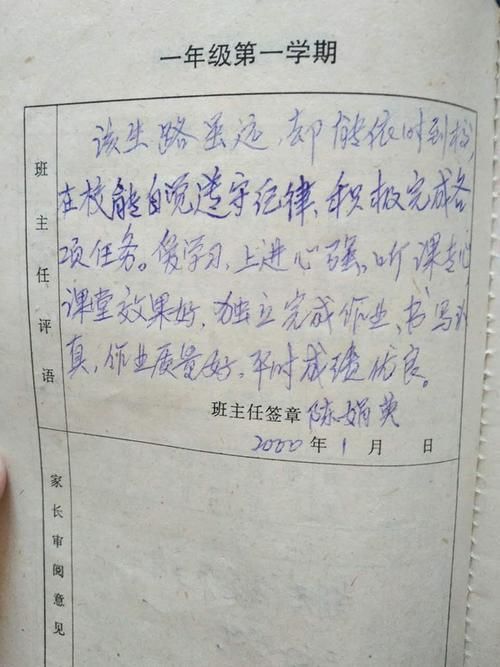 一年级第一学期
班主任评语
该生路虽远,却能依时到校,
在校能自觉遵守纪律、积极完成各
项任务。爱学习,上进心强。听课专心
课堂效果好,独立完成作业,书写认
真,作业质量好,平时成绩优良。
班主任签章 陈娟英
2000年1月 日
家长审阅意见